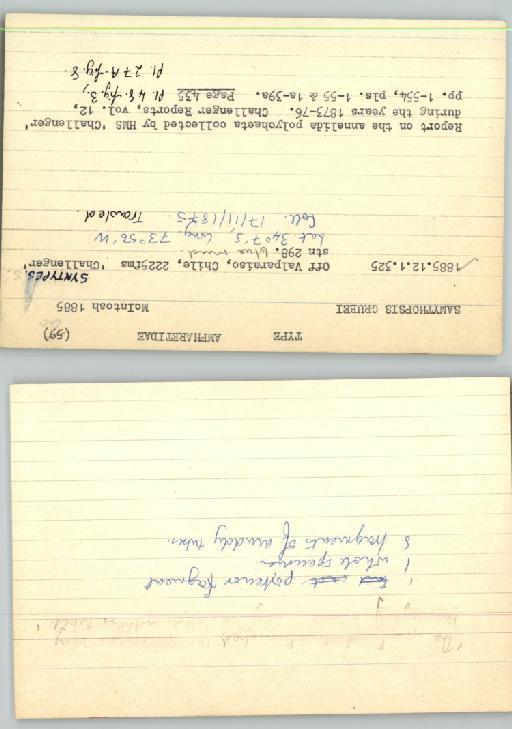 TYPE AMPHARETIDAE (59)
SAMYTHOPSIS GRUBEI McIntosh 1885
SYNTYPES
1885.12.1.325 Off Valparaiso, Chile, 2225fms 'Challenger'
stn 298. blue mud
Lat 34°7'S, Long. 73°56'W
Coll. 17/11/1875. Trawled.
Report on the annelida polychaeta collected by HMS 'Challenger'
during the years 1873-76. Challenger Reports, vol. 12,
pp. 1-554, pls. 1-55 & 1a-39a. Page 435
Pl. 48. fig. 3,
Pl. 27A. fig. 8.
1 posterior fragment
1 whole specimen
8 fragments of muddy tubes.